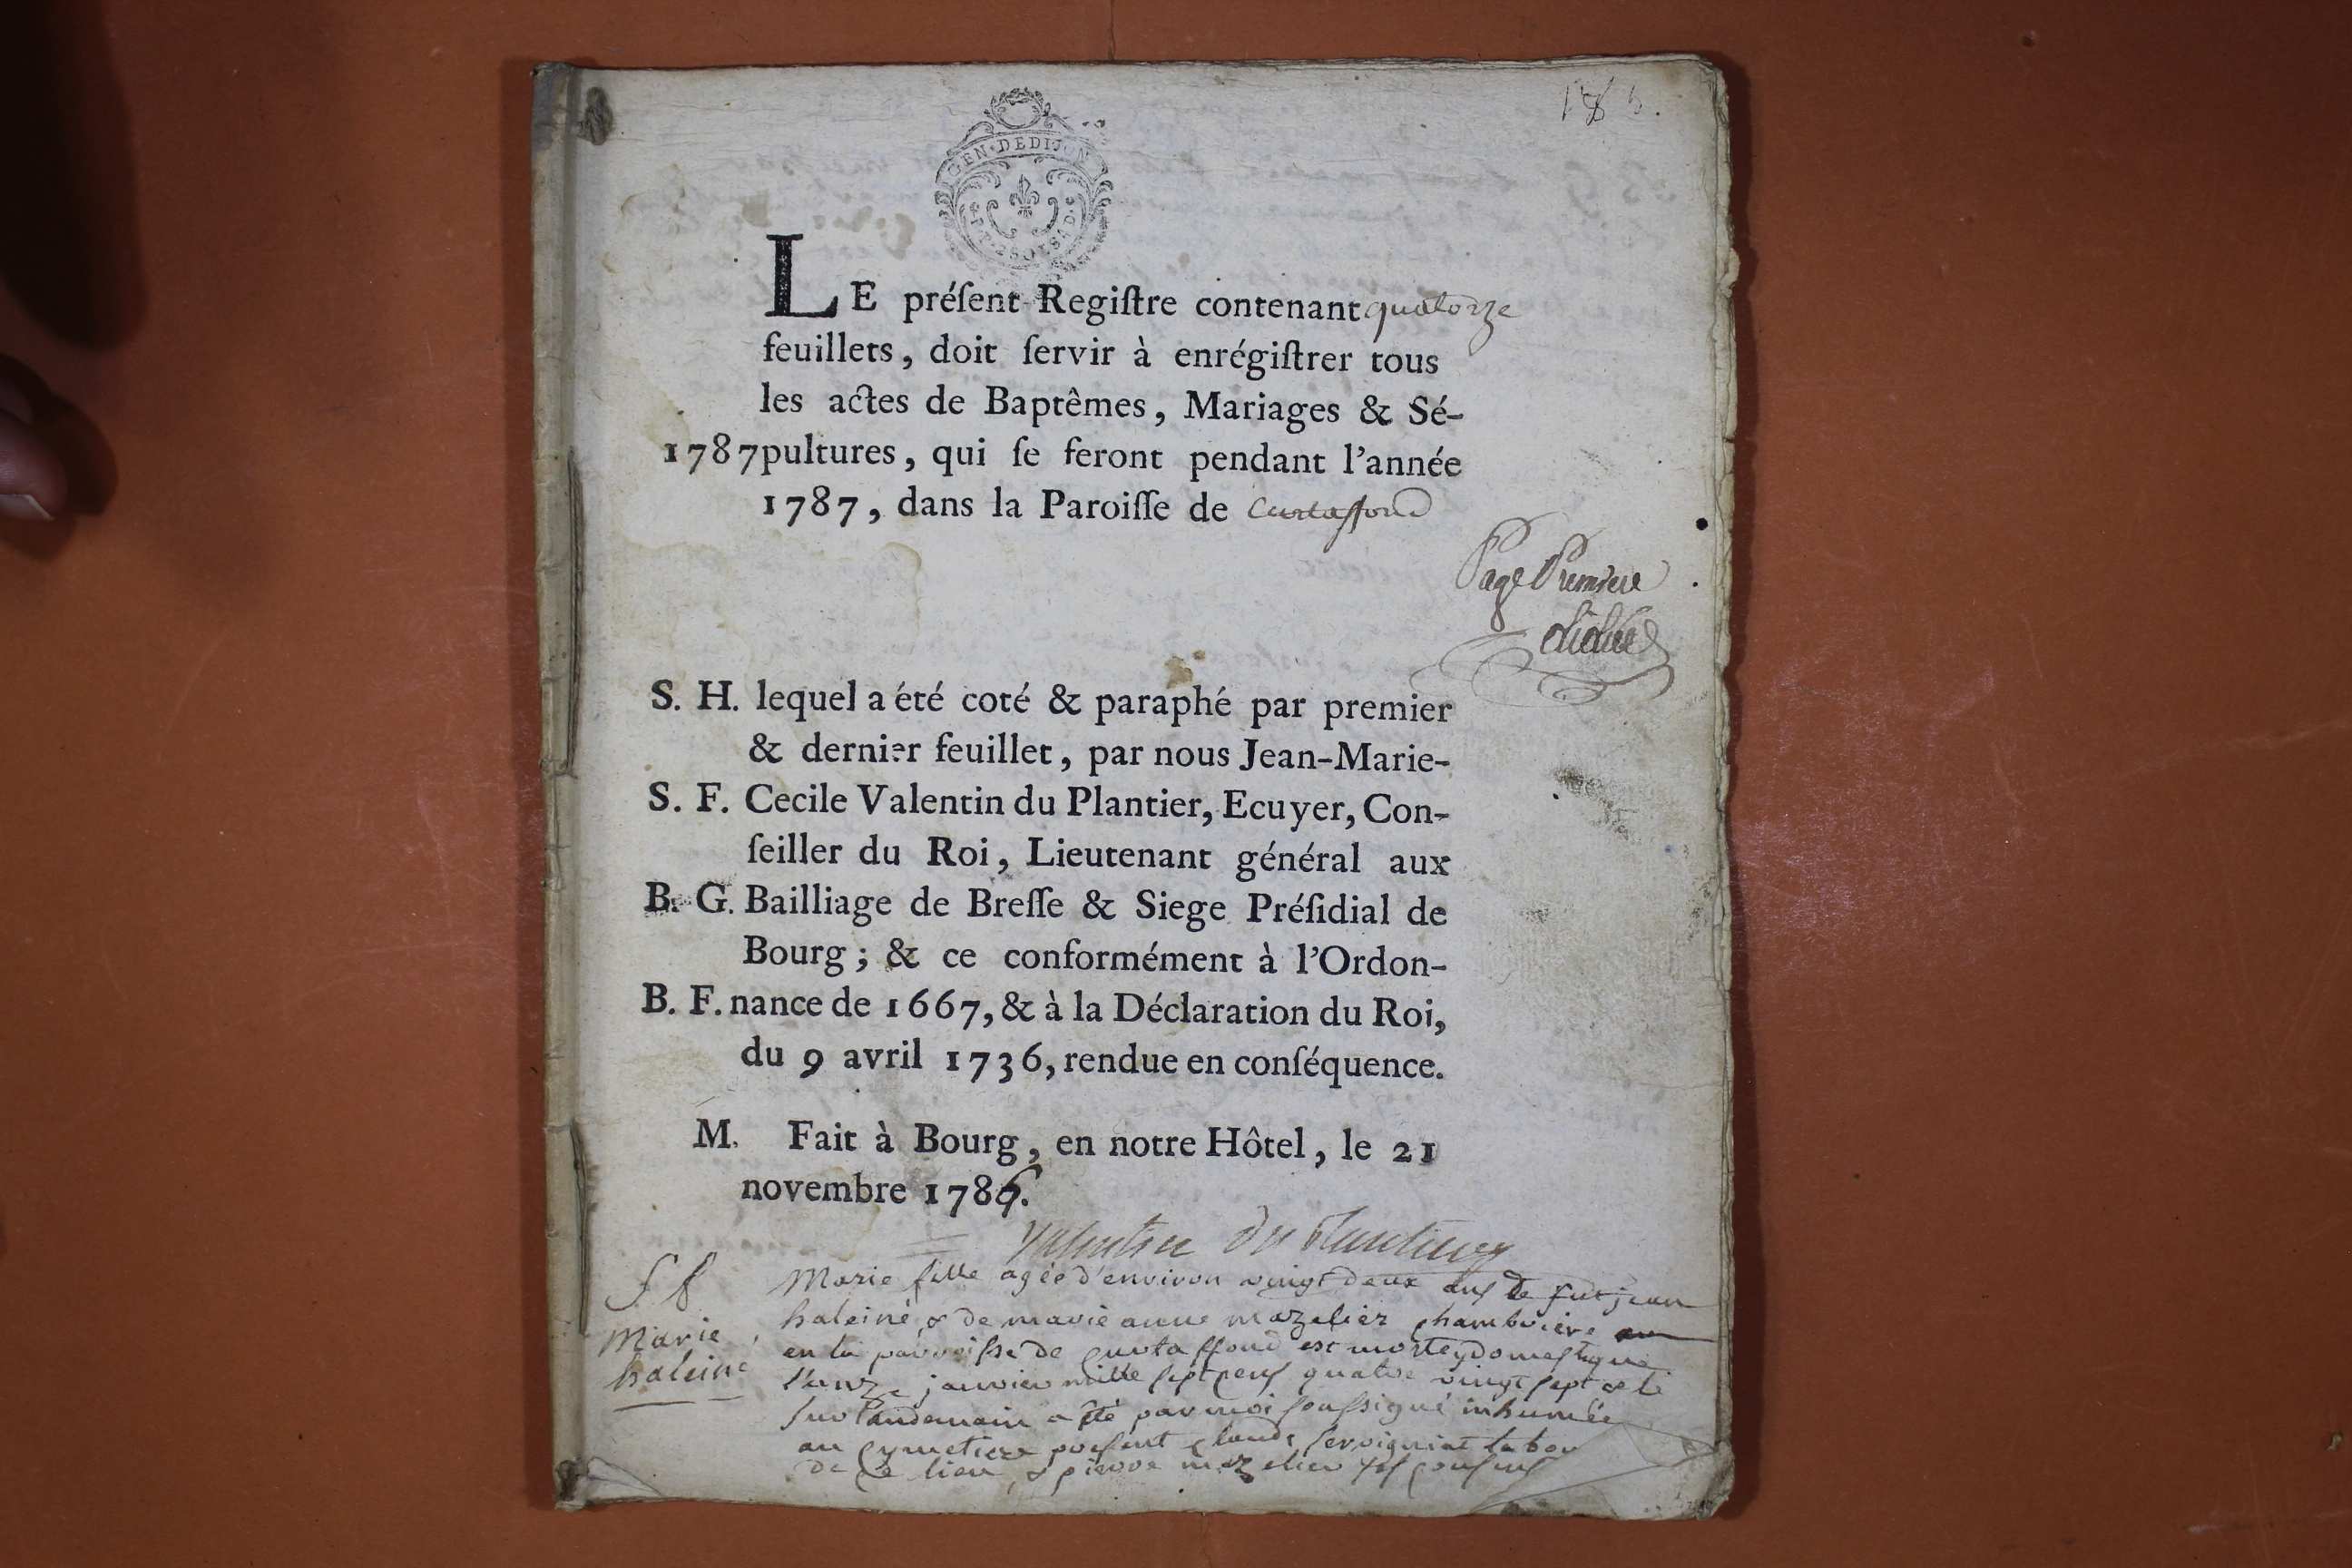 GEN · DEDIJON
LE préſent Regiſtre contenant quatorze
feuillets, doit ſervir à enrégiſtrer tous
les actes de Baptêmes, Mariages & Sé-
1787 pultures, qui ſe feront pendant l'année
1787, dans la Paroiſſe de Curtaffond
Page Premiere
S. H. lequel a été coté & paraphé par premier
& dernier feuillet, par nous Jean-Marie-
S. F. Cecile Valentin du Plantier, Ecuyer, Con-
ſeiller du Roi, Lieutenant général aux
B. G. Bailliage de Breſſe & Siege Préſidial de
Bourg ; & ce conformément à l'Ordon-
B. F. nance de 1667, & à la Déclaration du Roi,
du 9 avril 1736, rendue en conſéquence.
M. Fait à Bourg, en notre Hôtel, le 21
novembre 1786.
Valentin Du Plantier
Marie fille agée d'environ vingt deux ans de fut jean
haleine & de marie anne mazelier chambriere
en la parroisse de Curtaffond est morte domestique
Marie
haleine
janvier mille sept cens quatre vingt sept & le
landemain a été par moi soussigné inhumée
au cymetiere presens claude servigniat
de ce lieu, & pierre mazelier ses cousins